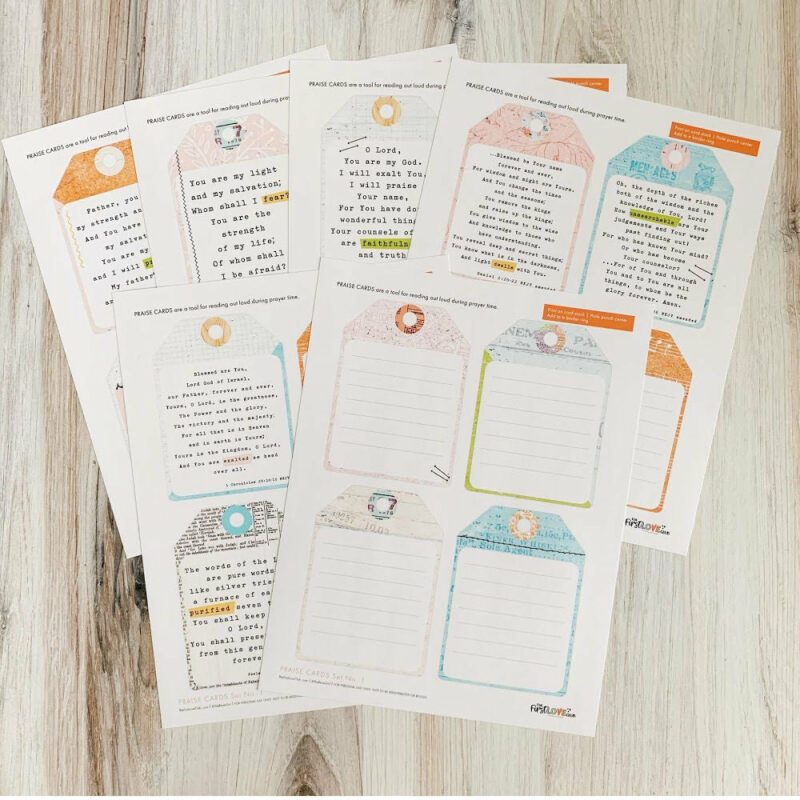 PRAISE CARDS are a tool for reading out loud
Father, you
my strength an
And You have
my salva
You are my
and I will
My father'
PRAISE CARDS are a tool for reading out loud during pray
7
You are my light
and my salvation;
Whom shall I fear?
You are the
strength
of my life;
Of whom shall
I be afraid?
PRAISE CARDS are a tool for reading out loud during
O Lord,
You are my God.
I will exalt You,
I will praise
Your name,
For You have do
wonderful thin
Your counsels of
are faithfuln
and truth
PRAISE CARDS are a tool for reading out loud during prayer time.
Print on card stock | Hole punch center
Add to a binder ring
...Blessed be Your name
forever and ever,
For wisdom and might are Yours.
And You change the times
and the seasons;
You remove the kings
and raise up the kings;
You give wisdom to the wise
And knowledge to those who
have understanding.
You reveal deep and secret things;
You know what is in the darkness,
And light dwells with You.
Daniel 2:20-22 NKJV amended
MENACES
Oh, the depth of the riches
both of the wisdom and the
knowledge of You, Lord!
How unsearchable are Your
judgements and Your ways
past finding out!
For who has known Your mind?
Or who has become
Your counselor?
...For of You and through
You and to You are all
things, to whom be the
glory forever. Amen.
NKJV amended
the First LOVE
PRAISE CARDS are a tool for reading out loud during prayer time.
Blessed are You,
Lord God of Israel,
our Father, forever and ever.
Yours, O Lord, is the greatness,
The Power and the glory,
The victory and the majesty;
For all that is in Heaven
and in earth is Yours;
Yours is the Kingdom, O Lord,
And You are exalted as head
over all.
1 Chronicles 29:10-11 NKJV
The words of the L
are pure words
like silver trie
a furnace of ea
purified seven t
You shall keep
O Lord,
You shall prese
from this gen
foreve
Psalm
PRAISE CARDS Set No. 1
PRAISE CARDS are a tool for reading out loud during prayer time.
Print on card stock | Hole punch center
Add to a binder ring
Cousin
7
Sole Agent
PRAISE CARDS Set No. 1
the First LOVE